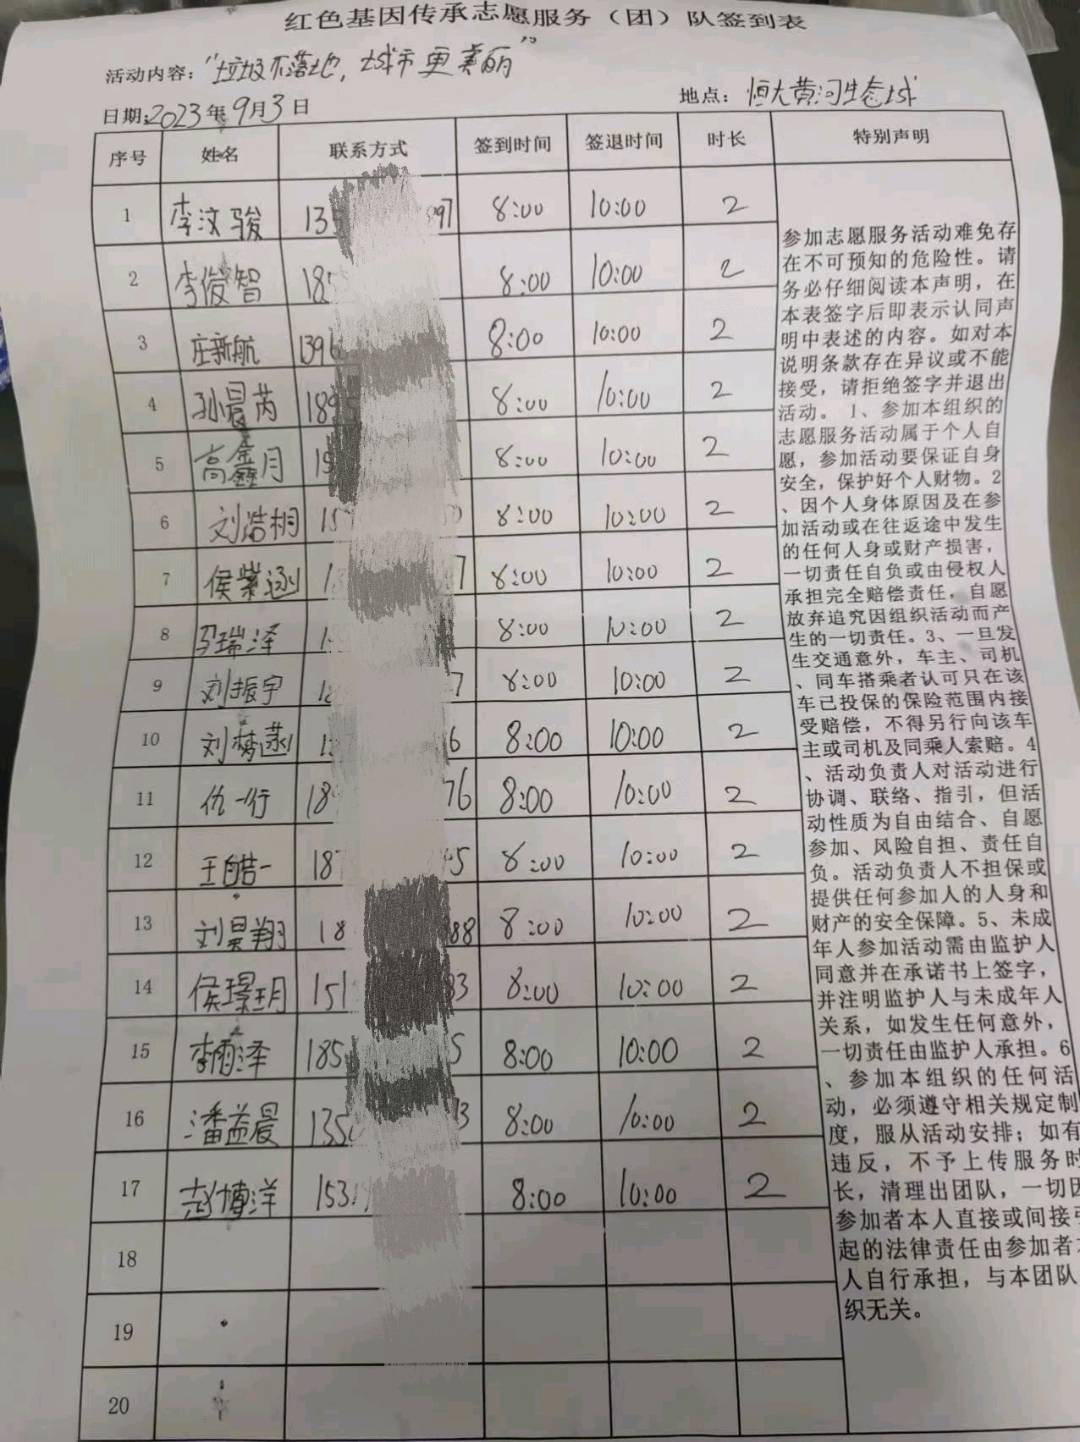 红色基因传承志愿服务（团）队签到表
活动内容：“垃圾不落地，城市更美丽”
日期:2023年9月3日 地点：恒大黄河生态城
序号 姓名 联系方式 签到时间 签退时间 时长 特别声明
1 李汶骏 135 897 8:00 10:00 2
2 李俊智 185 8:00 10:00 2
3 庄新航 1396 8:00 10:00 2
4 孙晨芮 1895 8:00 10:00 2
5 高鑫月 15 8:00 10:00 2
6 刘浩桐 15 8:00 10:00 2
7 侯紫涵 1 7 8:00 10:00 2
8 马瑞泽 8:00 10:00 2
9 刘振宇 18 7 8:00 10:00 2
10 刘梦涵 6 8:00 10:00 2
11 仇一行 18 76 8:00 10:00 2
12 王皓一 187 5 8:00 10:00 2
13 刘昊翔 18 888 8:00 10:00 2
14 侯璟玥 151 83 8:00 10:00 2
15 李雨泽 185 5 8:00 10:00 2
16 潘益晨 135 3 8:00 10:00 2
17 赵博洋 153 8:00 10:00 2
18
19
20
参加志愿服务活动难免存
在不可预知的危险性。请
务必仔细阅读本声明，在
本表签字后即表示认同声
明中表述的内容。如对本
说明条款存在异议或不能
接受，请拒绝签字并退出
活动。 1、参加本组织的
志愿服务活动属于个人自
愿，参加活动要保证自身
安全，保护好个人财物。2
、因个人身体原因及在参
加活动或在往返途中发生
的任何人身或财产损害，
一切责任自负或由侵权人
承担完全赔偿责任，自愿
放弃追究因组织活动而产
生的一切责任。3、一旦发
生交通意外，车主、司机
、同车搭乘者认可只在该
车已投保的保险范围内接
受赔偿，不得另行向该车
主或司机及同乘人索赔。4
、活动负责人对活动进行
协调、联络、指引，但活
动性质为自由结合、自愿
参加、风险自担、责任自
负。活动负责人不担保或
提供任何参加人的人身和
财产的安全保障。5、未成
年人参加活动需由监护人
同意并在承诺书上签字，
并注明监护人与未成年人
关系，如发生任何意外，
一切责任由监护人承担。6
、参加本组织的任何活
动，必须遵守相关规定制
度，服从活动安排；如有
违反，不予上传服务时
长，清理出团队，一切因
参加者本人直接或间接引
起的法律责任由参加者本
人自行承担，与本团队
织无关。